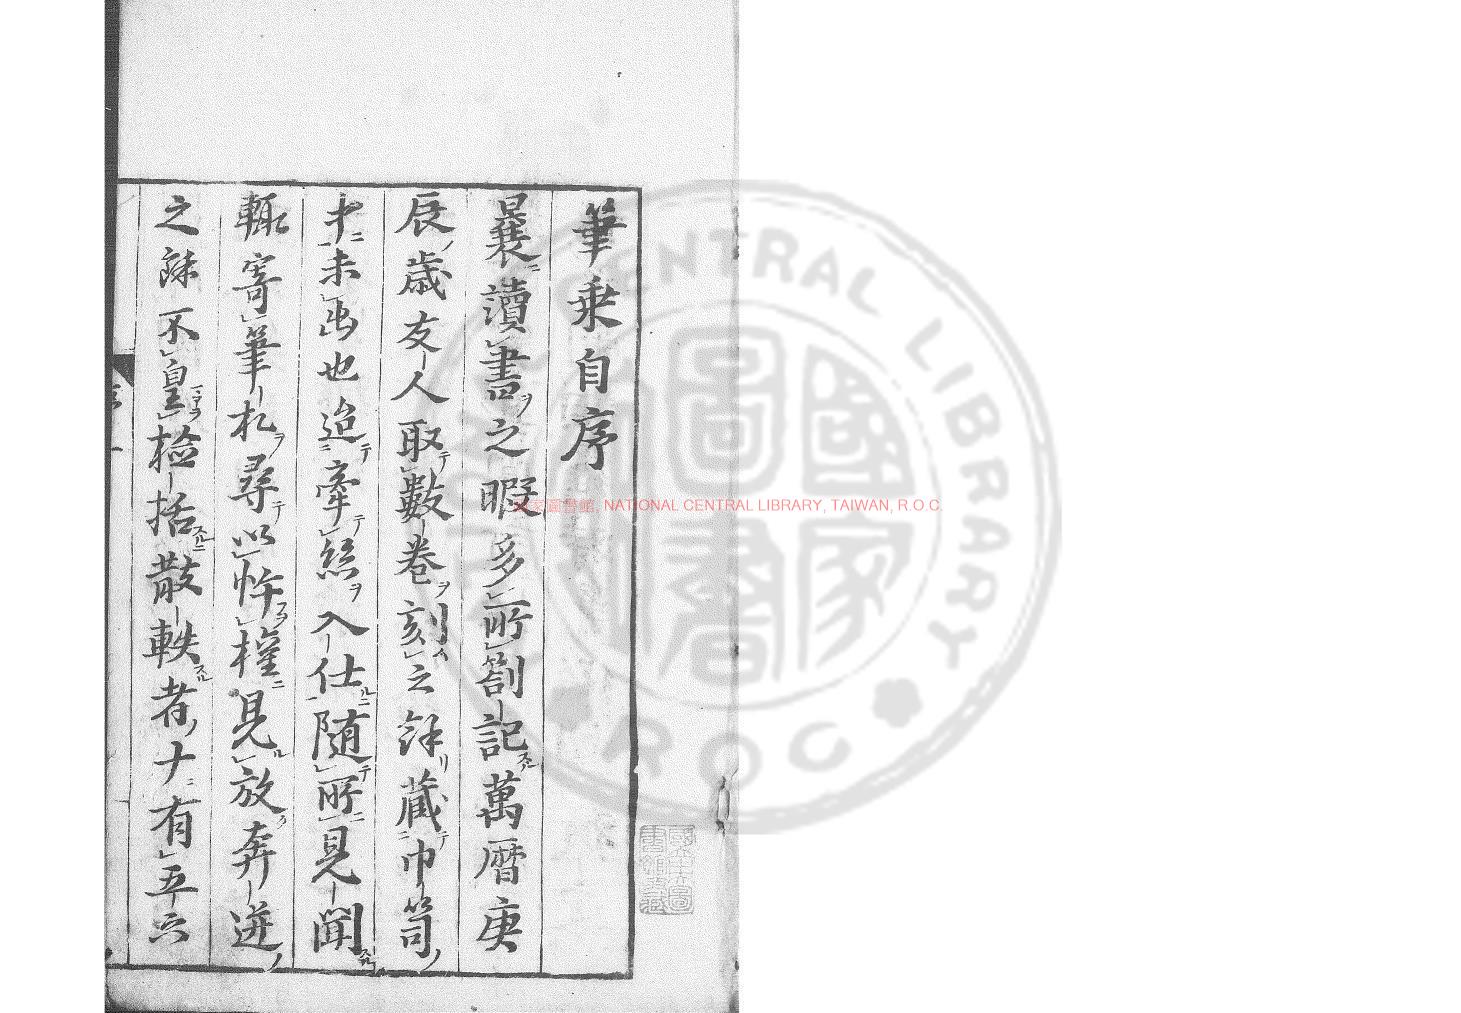 筆乘自序
曩讀書之暇多所劄記萬曆庚
辰歲友人取數卷刻之餘藏巾笥
中未出也迨牽絲入仕隨所見聞
輒寄筆札尋以忤權見放奔迸
之餘不皇檢括散軼者十有五六
國家圖書館, NATIONAL CENTRAL LIBRARY, TAIWAN, R.O.C.
NATIONAL CENTRAL LIBRARY
ROC
國家圖書